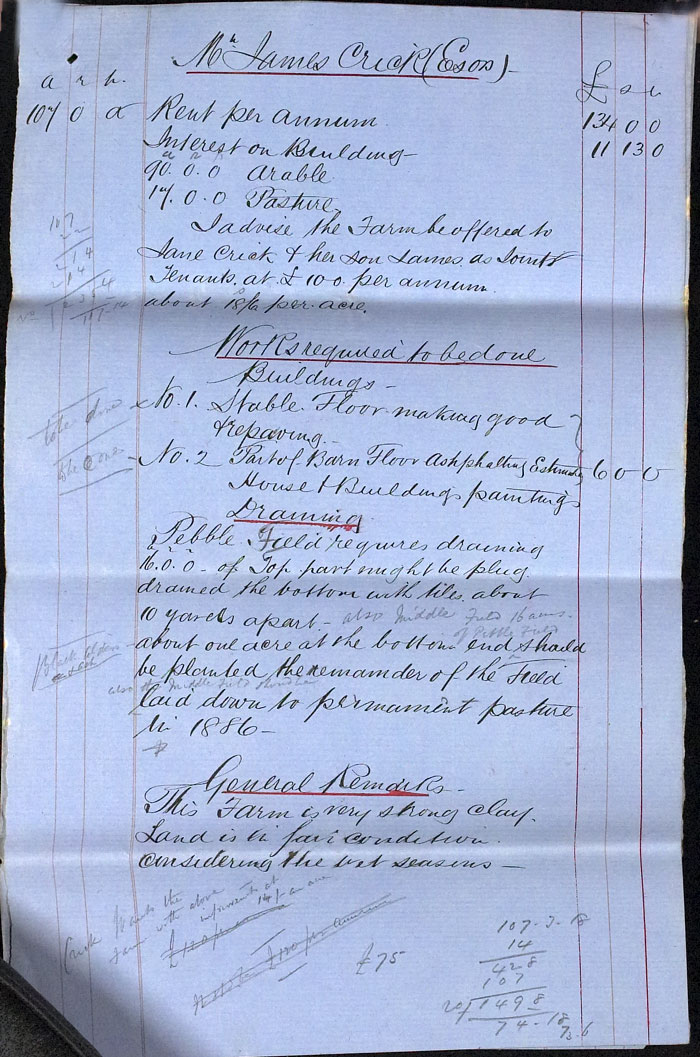 Mr James Crick (Exors)
a r p. £ s d
107 0 2 Rent per annum 134 0 0
Interest on Building 11 13 0
a r p
90. 0. 0 Arable
17. 0. 0 Pasture
I advise the Farm be offered to
Jane Crick & her Son James as Joint
Tenants. at £100. per annum.
about 18/6 per acre.
Works required to be done
Buildings -
No. 1. Stable Floor making good
& repaving.
No. 2 Part of Barn Floor Ashphalting Estimate 6 0 0
House & Buildings painting
Draining
Pebble Field requires draining
16. 0. 0 - of Top part might be plug
drained the bottom with tiles about
10 yards apart - also Middle Field 16 acres.
of Pebble Field
about one acre at the bottom end should
be planted the remainder of the Field
also the Middle Field
laid down to permament pasture
in 1886 -
General Remarks -
This Farm is very strong clay.
Land is in fair condition.
Considering the wet seasons -
107
14
to be done
to be done
Crick wants the
farm with above
improvements at
14/- an acre
£100 per
£100 per annum
£75
107 - 3 - 18
14
428
107
20/1498
74 - 18